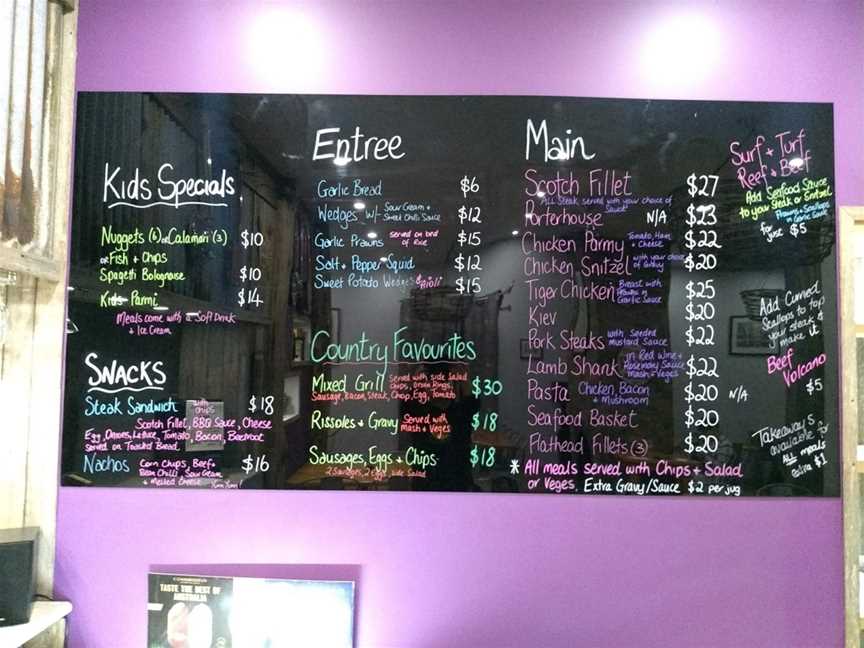 Kids Specials
Nuggets (6) or Calamari (3) $10
or Fish + Chips
Spagetti Bolognaise $10
Kids Parmi $14
Meals come with a Soft Drink
+ Ice Cream
SNACKS
Steak Sandwich with chips $18
Scotch Fillet, BBQ Sauce, Cheese
Egg, Onions, Lettuce, Tomato, Bacon, Beetroot
served on Toasted Bread
Nachos Corn Chips, Beef + $16
Bean Chilli, Sour Cream
+ Melted Cheese Yum Yum!
Entree
Garlic Bread $6
Wedges w/ Sour Cream + $12
Sweet Chilli Sauce
Garlic Prawns served on bed $15
of Rice
Salt + Pepper Squid $12
Sweet Potato Wedges & Aioli $15
Country Favourites
Mixed Grill Served with side Salad $30
chips, Onion Rings,
Sausage, Bacon, Steak, Chop, Egg, Tomato
Rissoles + Gravy Served with $18
mash + Veges
Sausages, Eggs + Chips $18
2 Sausages, 2 Eggs, side Salad
Main
Scotch Fillet $27
ALL Steak served with your choice of
Sauce
Porterhouse N/A $23
Chicken Parmy Tomato, Ham $22
+ Cheese
Chicken Snitzel with your choice $20
of Gravy
Tiger Chicken Breast with $25
Prawns in
Garlic Sauce
Kiev $20
Pork Steaks with Seeded $22
mustard Sauce
Lamb Shank in Red Wine + $22
Rosemary Sauce
Mash + Veges
Pasta Chicken, Bacon $20 N/A
+ Mushroom
Seafood Basket $20
Flathead Fillets (3) $20
* All meals served with Chips + Salad
or Veges. Extra Gravy/Sauce $2 per jug
Surf + Turf
Reef + Beef
Add Seafood Sauce
to your Steak or Snitzel
Prawns + Scallops
in Garlic Sauce
for just $5
Add Curried
Scallops to top
your steak &
make it
Beef
Volcano
$5
Takeaways
available for
ALL meals
extra $1
TASTE THE BEST OF
AUSTRALIA